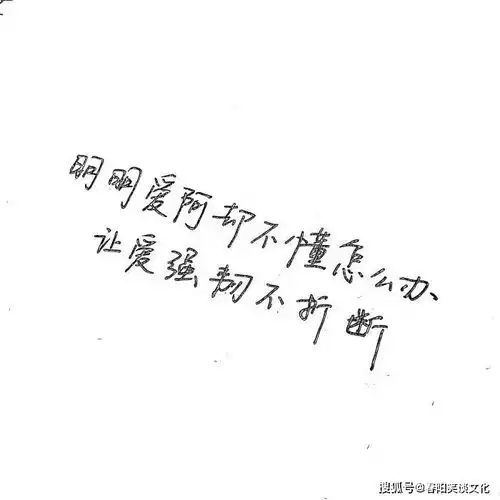 明明爱阿却不懂怎么办、
让爱强韧不折断
搜狐号@春阳笑谈文化